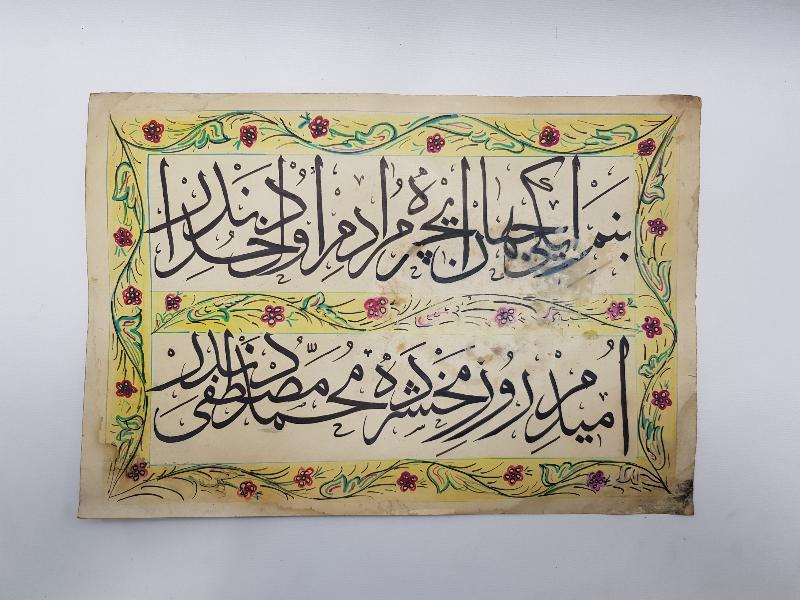 بنم ایكی جهان ایچره مرادم اول خدادندر
امیدم روز محشرده محمد مصطفی دندر